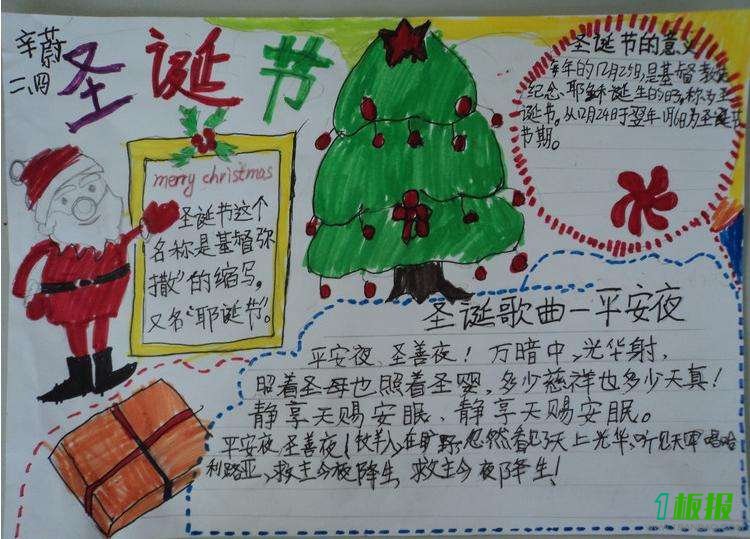 辛蔚
二.四
圣诞节
merry christmas
圣诞节这个
名称是基督弥
撒”的缩写。
又名“耶诞节”。
圣诞节的意义
每年的12月25日,是基督教徒
纪念、耶稣诞生的日子,称为圣
诞节。从12月24日于翌年1月6日为圣诞节
节期。
圣诞歌曲一平安夜
平安夜、圣善夜!万暗中,光华射,
照着圣母也照着圣婴,多少慈祥也多少天真!
静享天赐安眠、静享天赐安眠。
平安夜,圣善夜!牧羊人,在旷野,忽然看见天上光华,听见天军唱哈
利路亚,救主今夜降生,救主今夜降生!
1板报